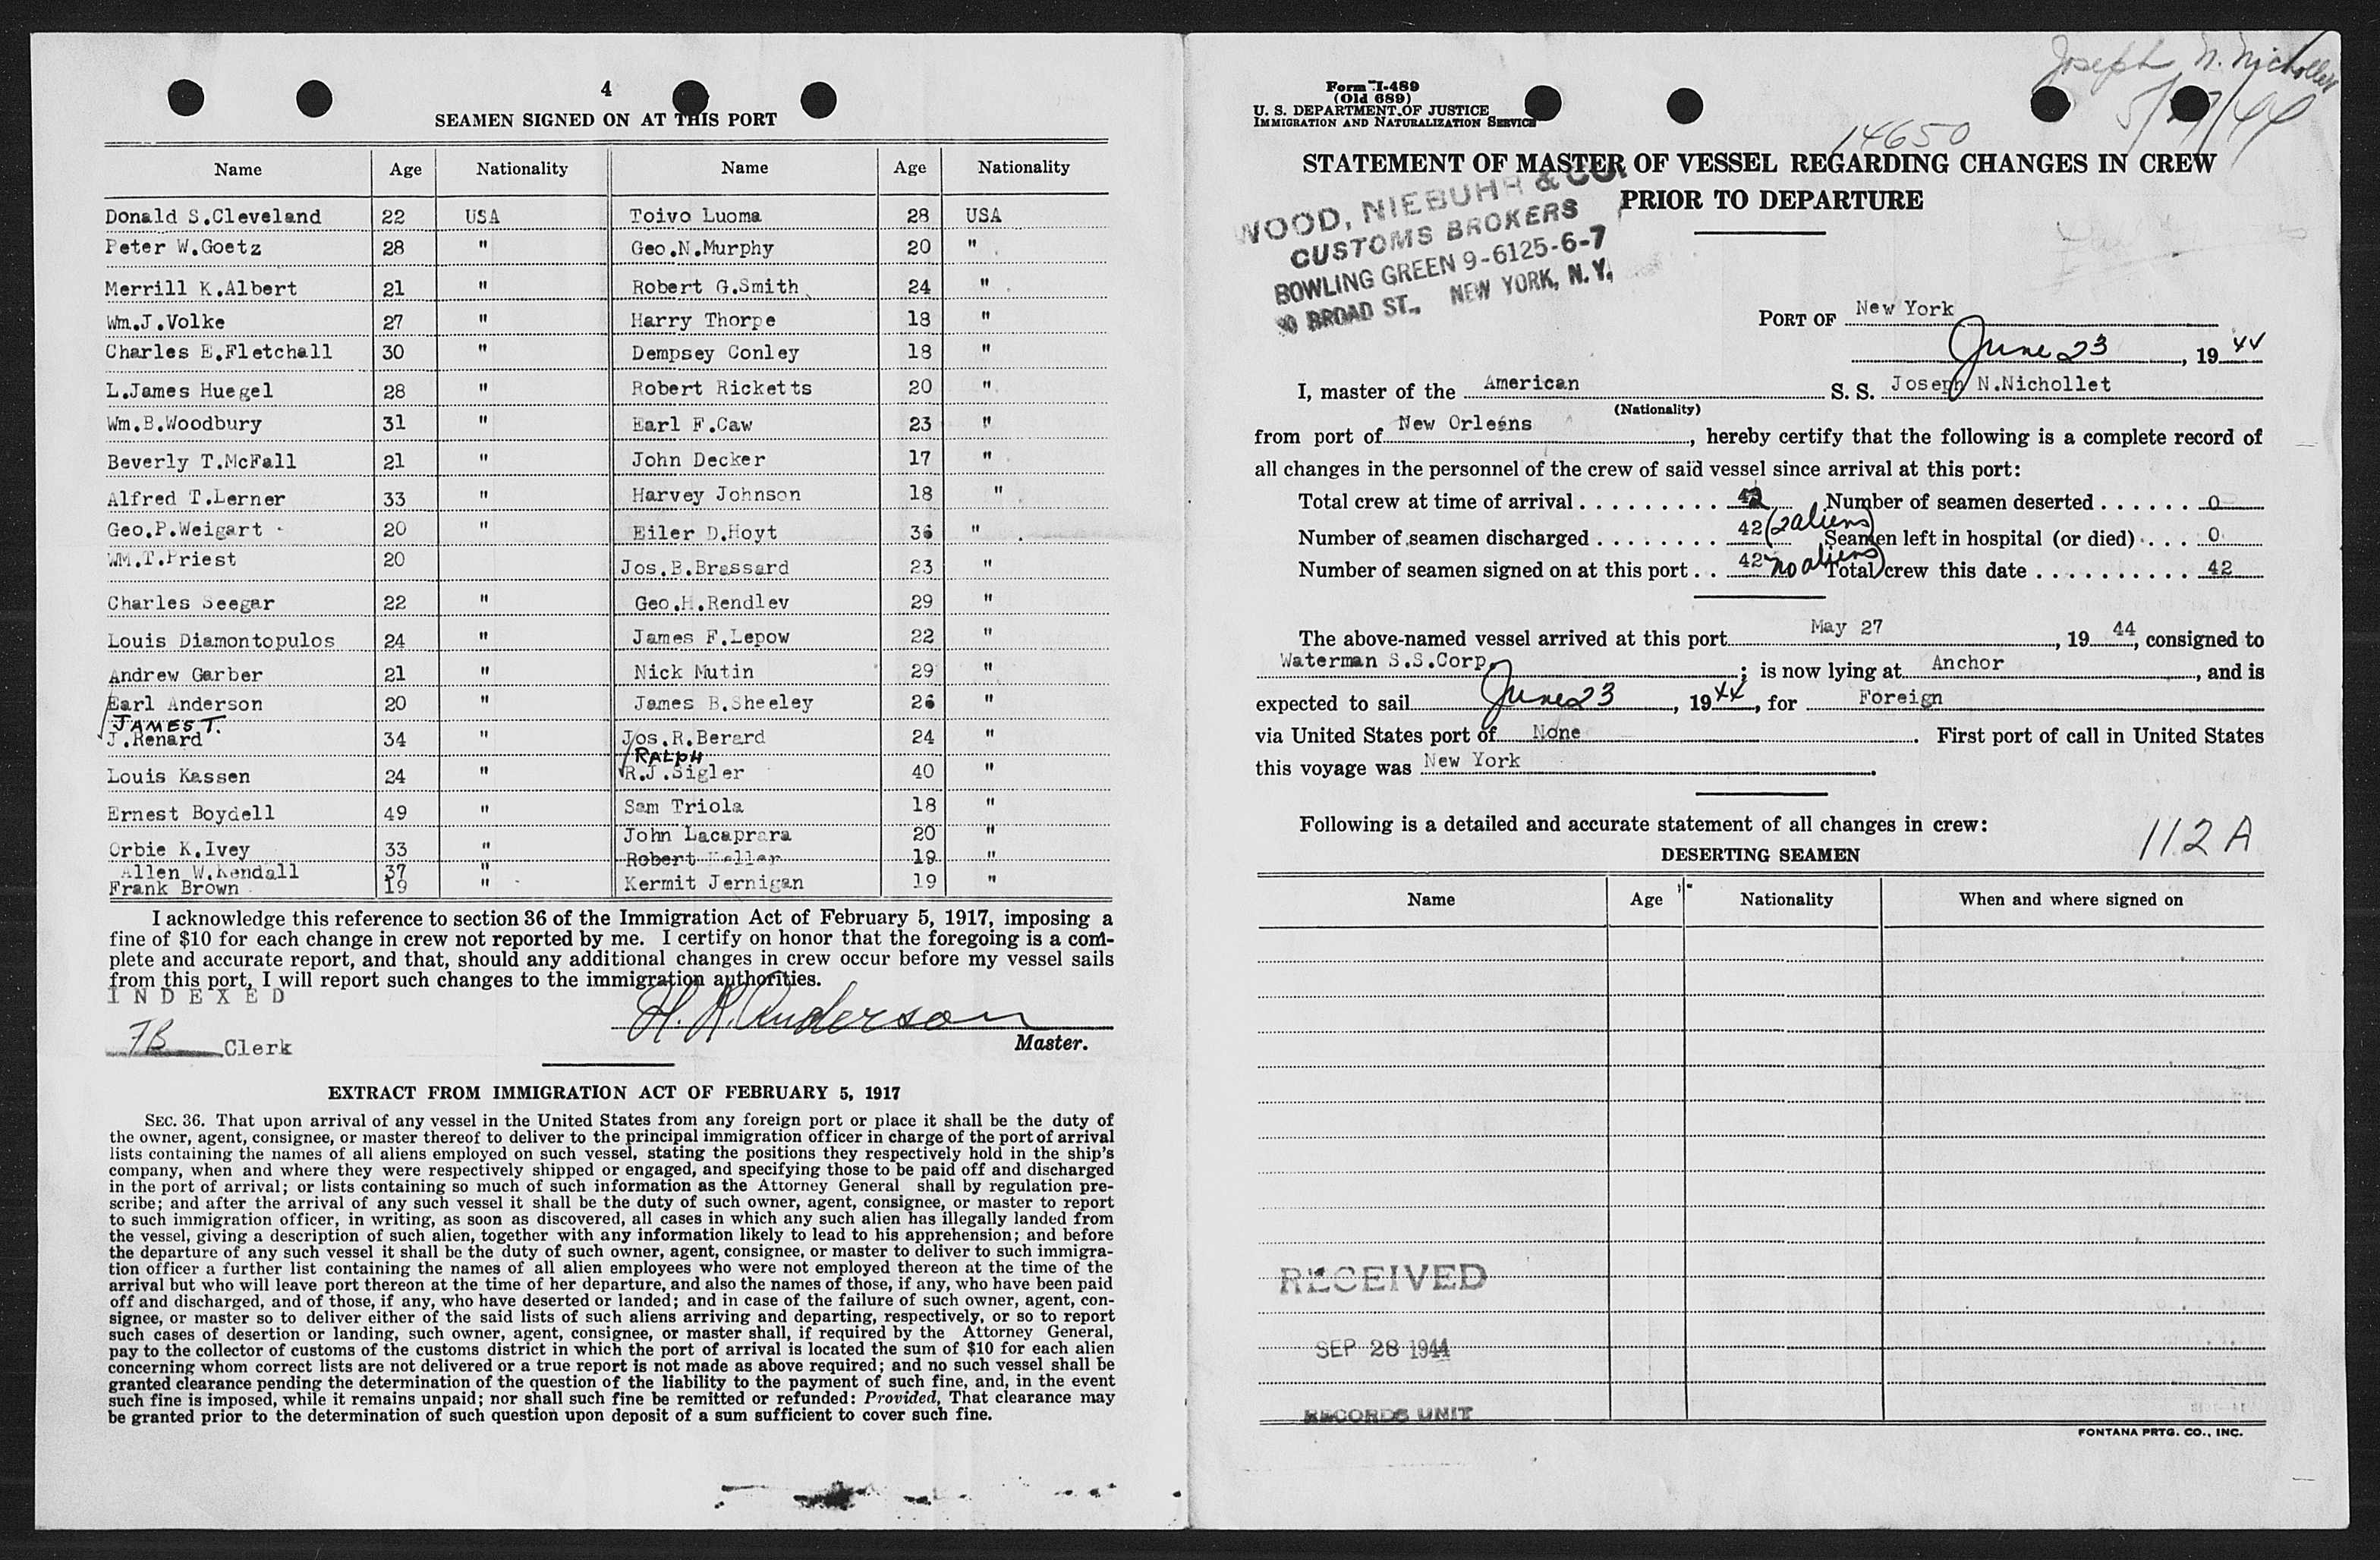 4
SEAMEN SIGNED ON AT THIS PORT
Name Age Nationality Name Age Nationality
Donald S.Cleveland 22 USA Toivo Luoma 28 USA
Peter W.Goetz 28 " Geo.N.Murphy 20 "
Merrill K.Albert 21 " Robert G.Smith 24 "
Wm.J.Volke 27 " Harry Thorpe 18 "
Charles E.Fletchall 30 " Dempsey Conley 18 "
L.James Huegel 28 " Robert Ricketts 20 "
Wm.B.Woodbury 31 " Earl F.Caw 23 "
Beverly T.McFall 21 " John Decker 17 "
Alfred T.Lerner 33 " Harvey Johnson 18 "
Geo.P.Weigart 20 " Eiler D.Hoyt 36 "
WM.T.Priest 20 Jos.B.Brassard 23 "
Charles Seegar 22 " Geo.H.Rendlev 29 "
Louis Diamontopulos 24 " James F.Lepow 22 "
Andrew Garber 21 " Nick Mutin 29 "
Earl Anderson 20 " James B.Sheeley 26 "
JAMES T.
J.Renard 34 " Jos.R.Berard 24 "
RALPH
Louis Kassen 24 " R.J.Sigler 40 "
Ernest Boydell 49 " Sam Triola 18 "
John Lacaprara 20 "
Orbie K.Ivey 33 " Robert Keller 19 "
Allen W.Kendall 37 "
Frank Brown 19 " Kermit Jernigan 19 "
I acknowledge this reference to section 36 of the Immigration Act of February 5, 1917, imposing a
fine of $10 for each change in crew not reported by me. I certify on honor that the foregoing is a com-
plete and accurate report, and that, should any additional changes in crew occur before my vessel sails
from this port, I will report such changes to the immigration authorities.
INDEXED
H. A. Anderson
FB Clerk
Master.
EXTRACT FROM IMMIGRATION ACT OF FEBRUARY 5, 1917
SEC. 36. That upon arrival of any vessel in the United States from any foreign port or place it shall be the duty of
the owner, agent, consignee, or master thereof to deliver to the principal immigration officer in charge of the port of arrival
lists containing the names of all aliens employed on such vessel, stating the positions they respectively hold in the ship's
company, when and where they were respectively shipped or engaged, and specifying those to be paid off and discharged
in the port of arrival; or lists containing so much of such information as the Attorney General shall by regulation pre-
scribe; and after the arrival of any such vessel it shall be the duty of such owner, agent, consignee, or master to report
to such immigration officer, in writing, as soon as discovered, all cases in which any such alien has illegally landed from
the vessel, giving a description of such alien, together with any information likely to lead to his apprehension; and before
the departure of any such vessel it shall be the duty of such owner, agent, consignee, or master to deliver to such immigra-
tion officer a further list containing the names of all alien employees who were not employed thereon at the time of the
arrival but who will leave port thereon at the time of her departure, and also the names of those, if any, who have been paid
off and discharged, and of those, if any, who have deserted or landed; and in case of the failure of such owner, agent, con-
signee, or master so to deliver either of the said lists of such aliens arriving and departing, respectively, or so to report
such cases of desertion or landing, such owner, agent, consignee, or master shall, if required by the Attorney General,
pay to the collector of customs of the customs district in which the port of arrival is located the sum of $10 for each alien
concerning whom correct lists are not delivered or a true report is not made as above required; and no such vessel shall be
granted clearance pending the determination of the question of the liability to the payment of such fine, and, in the event
such fine is imposed, while it remains unpaid; nor shall such fine be remitted or refunded: Provided, That clearance may
be granted prior to the determination of such question upon deposit of a sum sufficient to cover such fine.
Joseph N. Nichollet
5/27/44
Form I-489
(Old 689)
U. S. DEPARTMENT OF JUSTICE
IMMIGRATION AND NATURALIZATION SERVICE
14650
STATEMENT OF MASTER OF VESSEL REGARDING CHANGES IN CREW
PRIOR TO DEPARTURE
WOOD, NIEBUHR & CO.
CUSTOMS BROKERS
BOWLING GREEN 9-6125-6-7
BROAD ST., NEW YORK, N.Y.
PORT OF New York
June 23, 19 44
I, master of the American S. S. Joseph N.Nichollet
(Nationality)
from port of New Orleans, hereby certify that the following is a complete record of
all changes in the personnel of the crew of said vessel since arrival at this port:
Total crew at time of arrival 42 Number of seamen deserted 0
Number of seamen discharged 42 (2 aliens) Seamen left in hospital (or died) 0
Number of seamen signed on at this port 42 no aliens) Total crew this date 42
The above-named vessel arrived at this port May 27, 19 44, consigned to
Waterman S.S.Corp.; is now lying at Anchor, and is
expected to sail June 23, 19 44, for Foreign
via United States port of None. First port of call in United States
this voyage was New York.
Following is a detailed and accurate statement of all changes in crew:
112 A
DESERTING SEAMEN
Name Age Nationality When and where signed on
RECEIVED
SEP 28 1944
RECORDS UNIT
FONTANA PRTG. CO., INC.